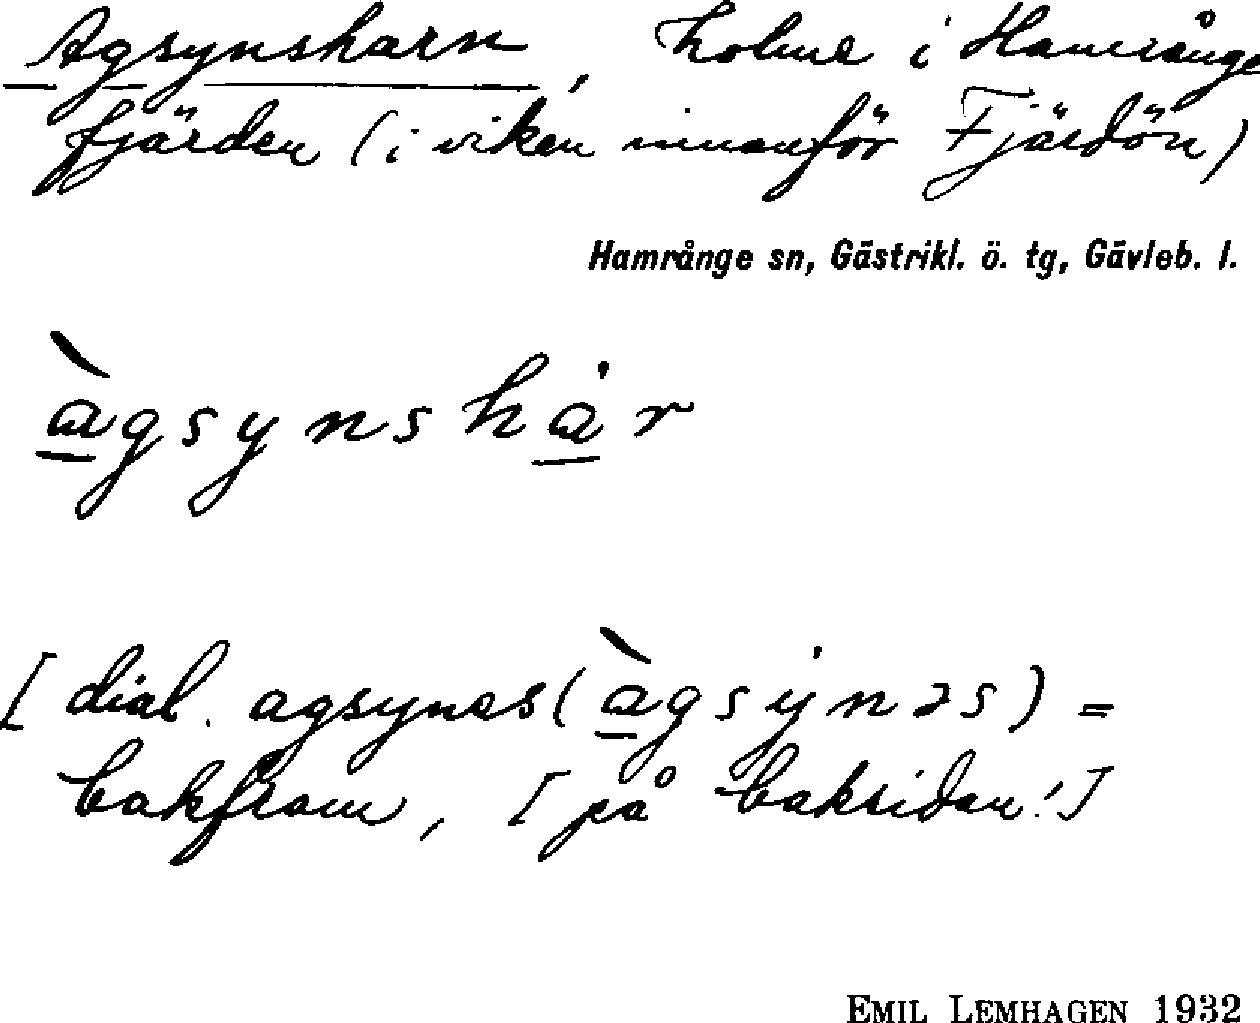 Agsynsharn, holme i Hamrånge
fjärden (i viken innanför Fjärdön)
Hamrånge sn, Gästrikl. ö. tg, Gävleb. l.
àgsynshȧr
[ dial. agsynes (àgsẏnəs) =
bakfram, [ på baksidan!]
EMIL LEMHAGEN 1932